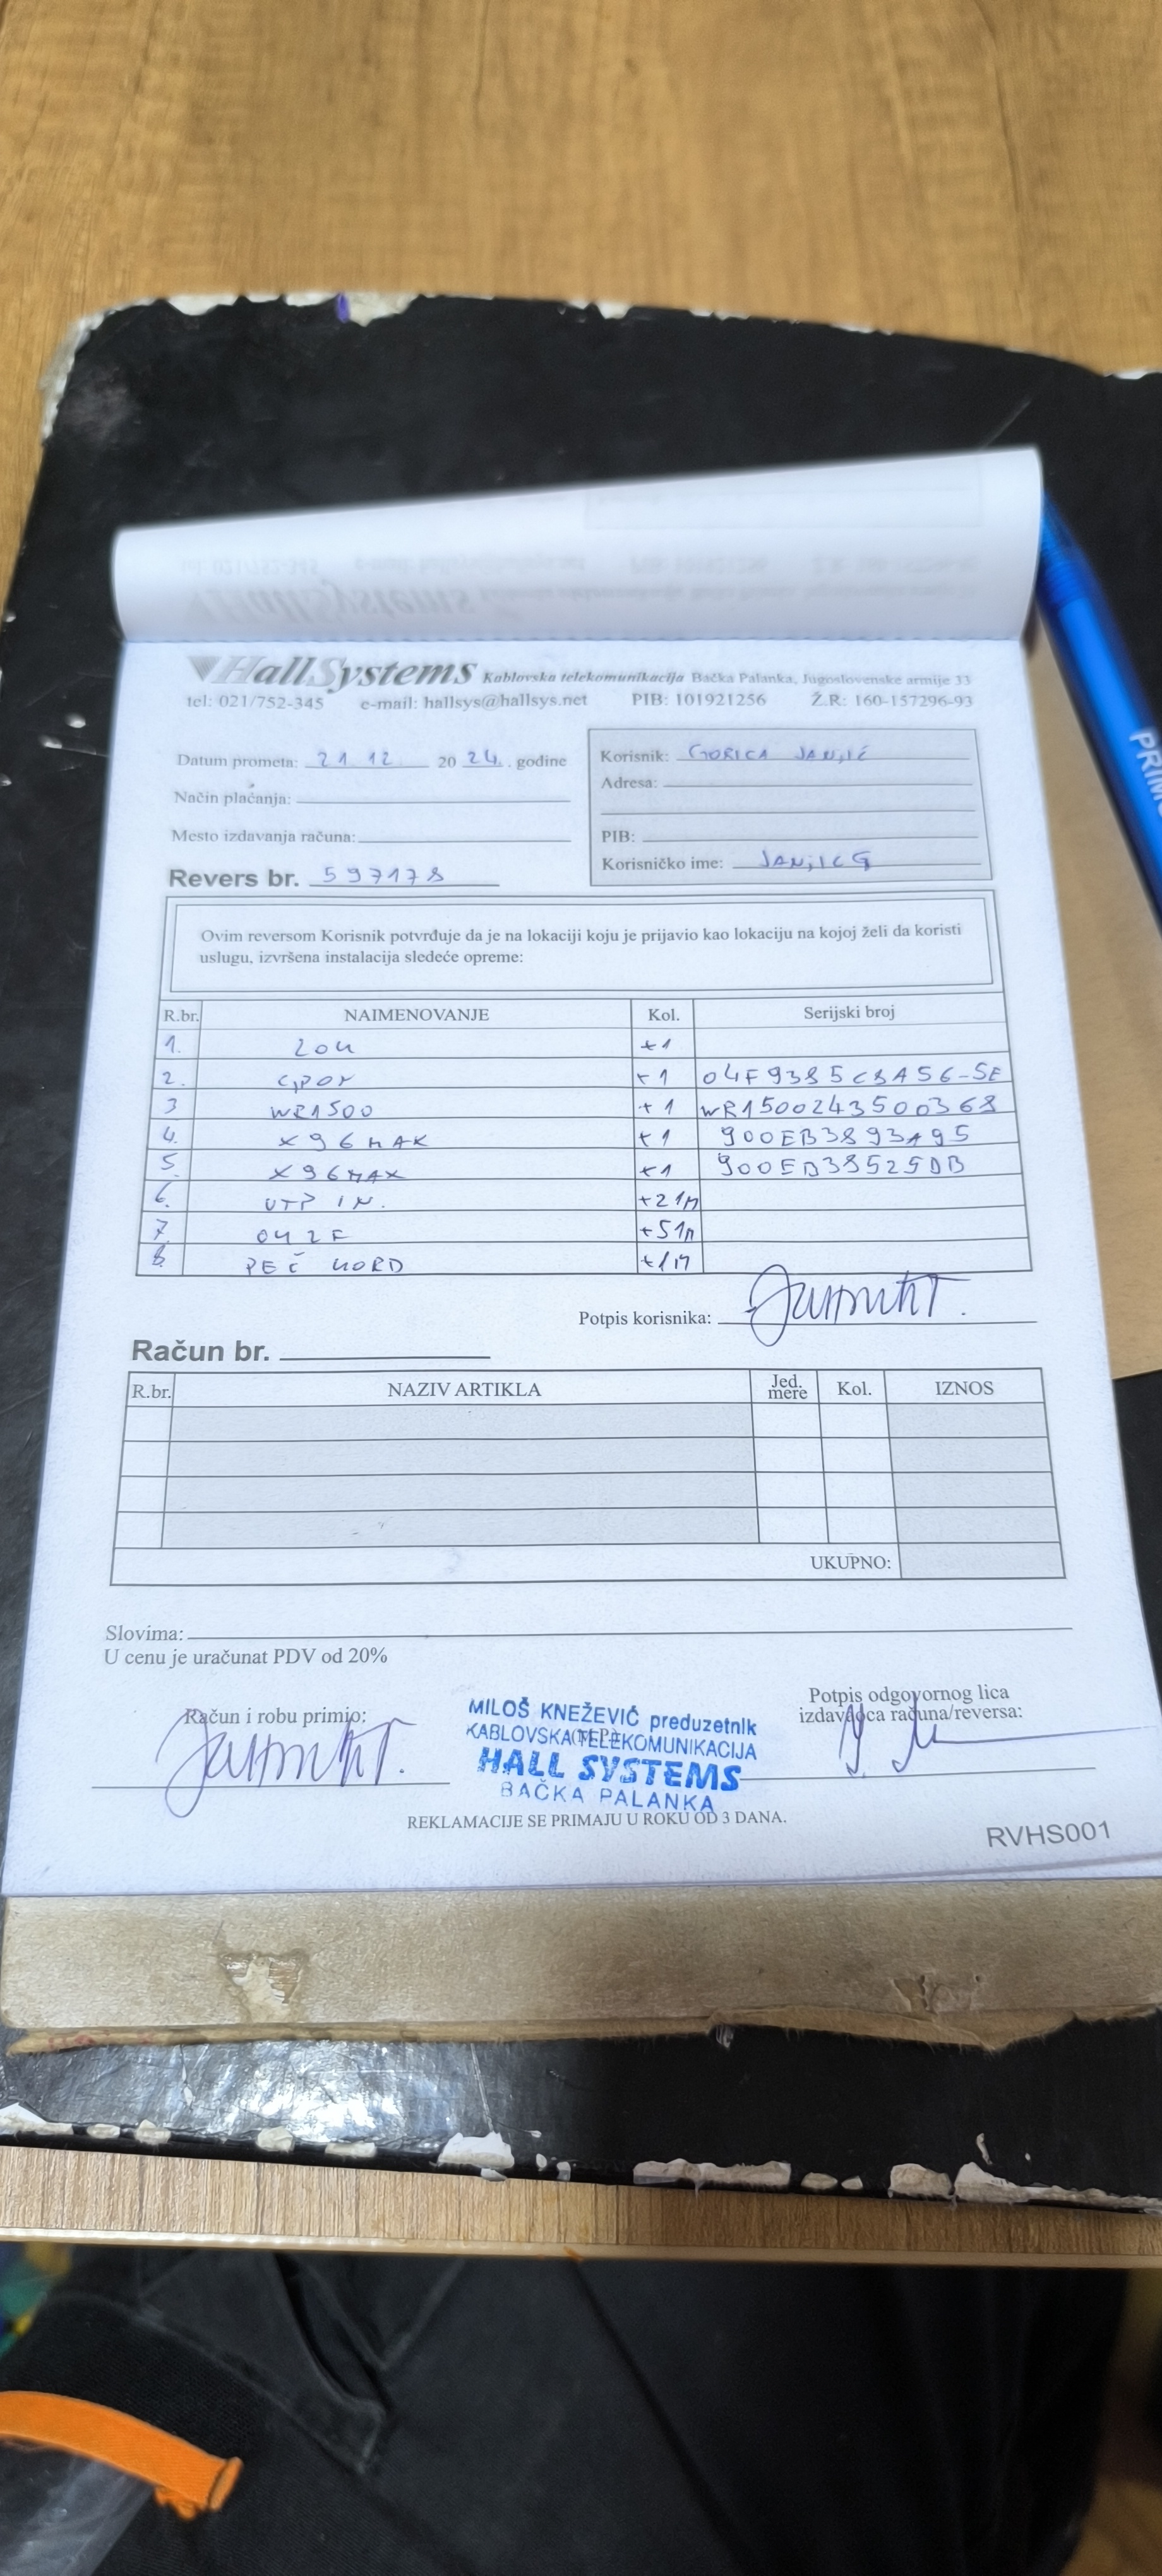 HallSystems Kablovska telekomunikacija Bačka Palanka, Jugoslovenske armije 33
tel: 021/752-345 e-mail: hallsys@hallsys.net PIB: 101921256 Ž.R: 160-157296-93
Datum prometa: 21 12 20 24. godine
Način plaćanja:
Mesto izdavanja računa:
Revers br. 597178
Korisnik: GORICA JANJIĆ
Adresa:
PIB:
Korisničko ime: JANJICG
Ovim reversom Korisnik potvrđuje da je na lokaciji koju je prijavio kao lokaciju na kojoj želi da koristi
uslugu, izvršena instalacija sledeće opreme:
R.br. NAIMENOVANJE Kol. Serijski broj
1. +1
2. GPON +1 04F9385C8A56-5E
3 WR1500 +1 WR1500243500368
4. X96MAX +1 900EB3893A95
5. X96MAX +1 900EB38525DB
6. UTP IN. +21M
7. +51M
8. +1M
Potpis korisnika:
Račun br.
R.br. NAZIV ARTIKLA Jed. mere Kol. IZNOS
UKUPNO:
Slovima:
U cenu je uračunat PDV od 20%
Račun i robu primio:
MILOŠ KNEŽEVIĆ preduzetnik
KABLOVSKA TELEKOMUNIKACIJA
HALL SYSTEMS
BAČKA PALANKA
Potpis odgovornog lica
izdavaoca računa/reversa:
REKLAMACIJE SE PRIMAJU U ROKU OD 3 DANA.
RVHS001